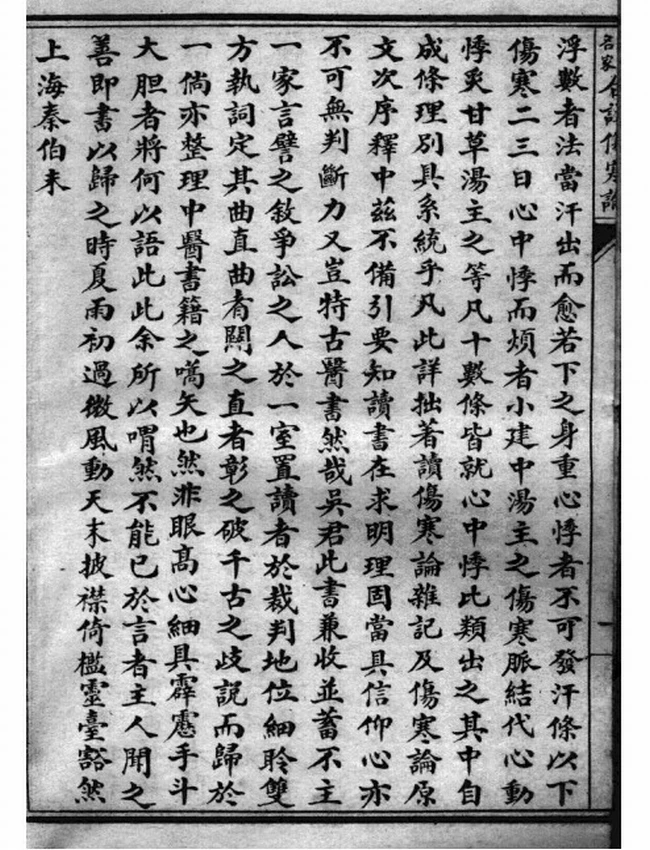 名家合註傷寒論
浮數者法當汗出而愈若下之身重心悸者不可發汗條以下
傷寒二三日心中悸而煩者小建中湯主之傷寒脈結代心動
悸炙甘草湯主之等凡十數條皆就心中悸比類出之其中自
成條理別具系統乎凡此詳拙著讀傷寒論雜記及傷寒論原
文次序釋中茲不備引要知讀書在求明理固當具信仰心亦
不可無判斷力又豈特古醫書然哉吳君此書兼收並蓄不主
一家言譬之敘爭訟之人於一室置讀者於裁判地位細聆雙
方執詞定其曲直曲者闢之直者彰之破千古之歧說而歸於
一倘亦整理中醫書籍之嚆矢也然非眼高心細具霹靂手斗
大胆者將何以語此此余所以喟然不能已於言者主人聞之
善即書以歸之時夏雨初過微風動天末披襟倚檻靈臺豁然
上海秦伯未